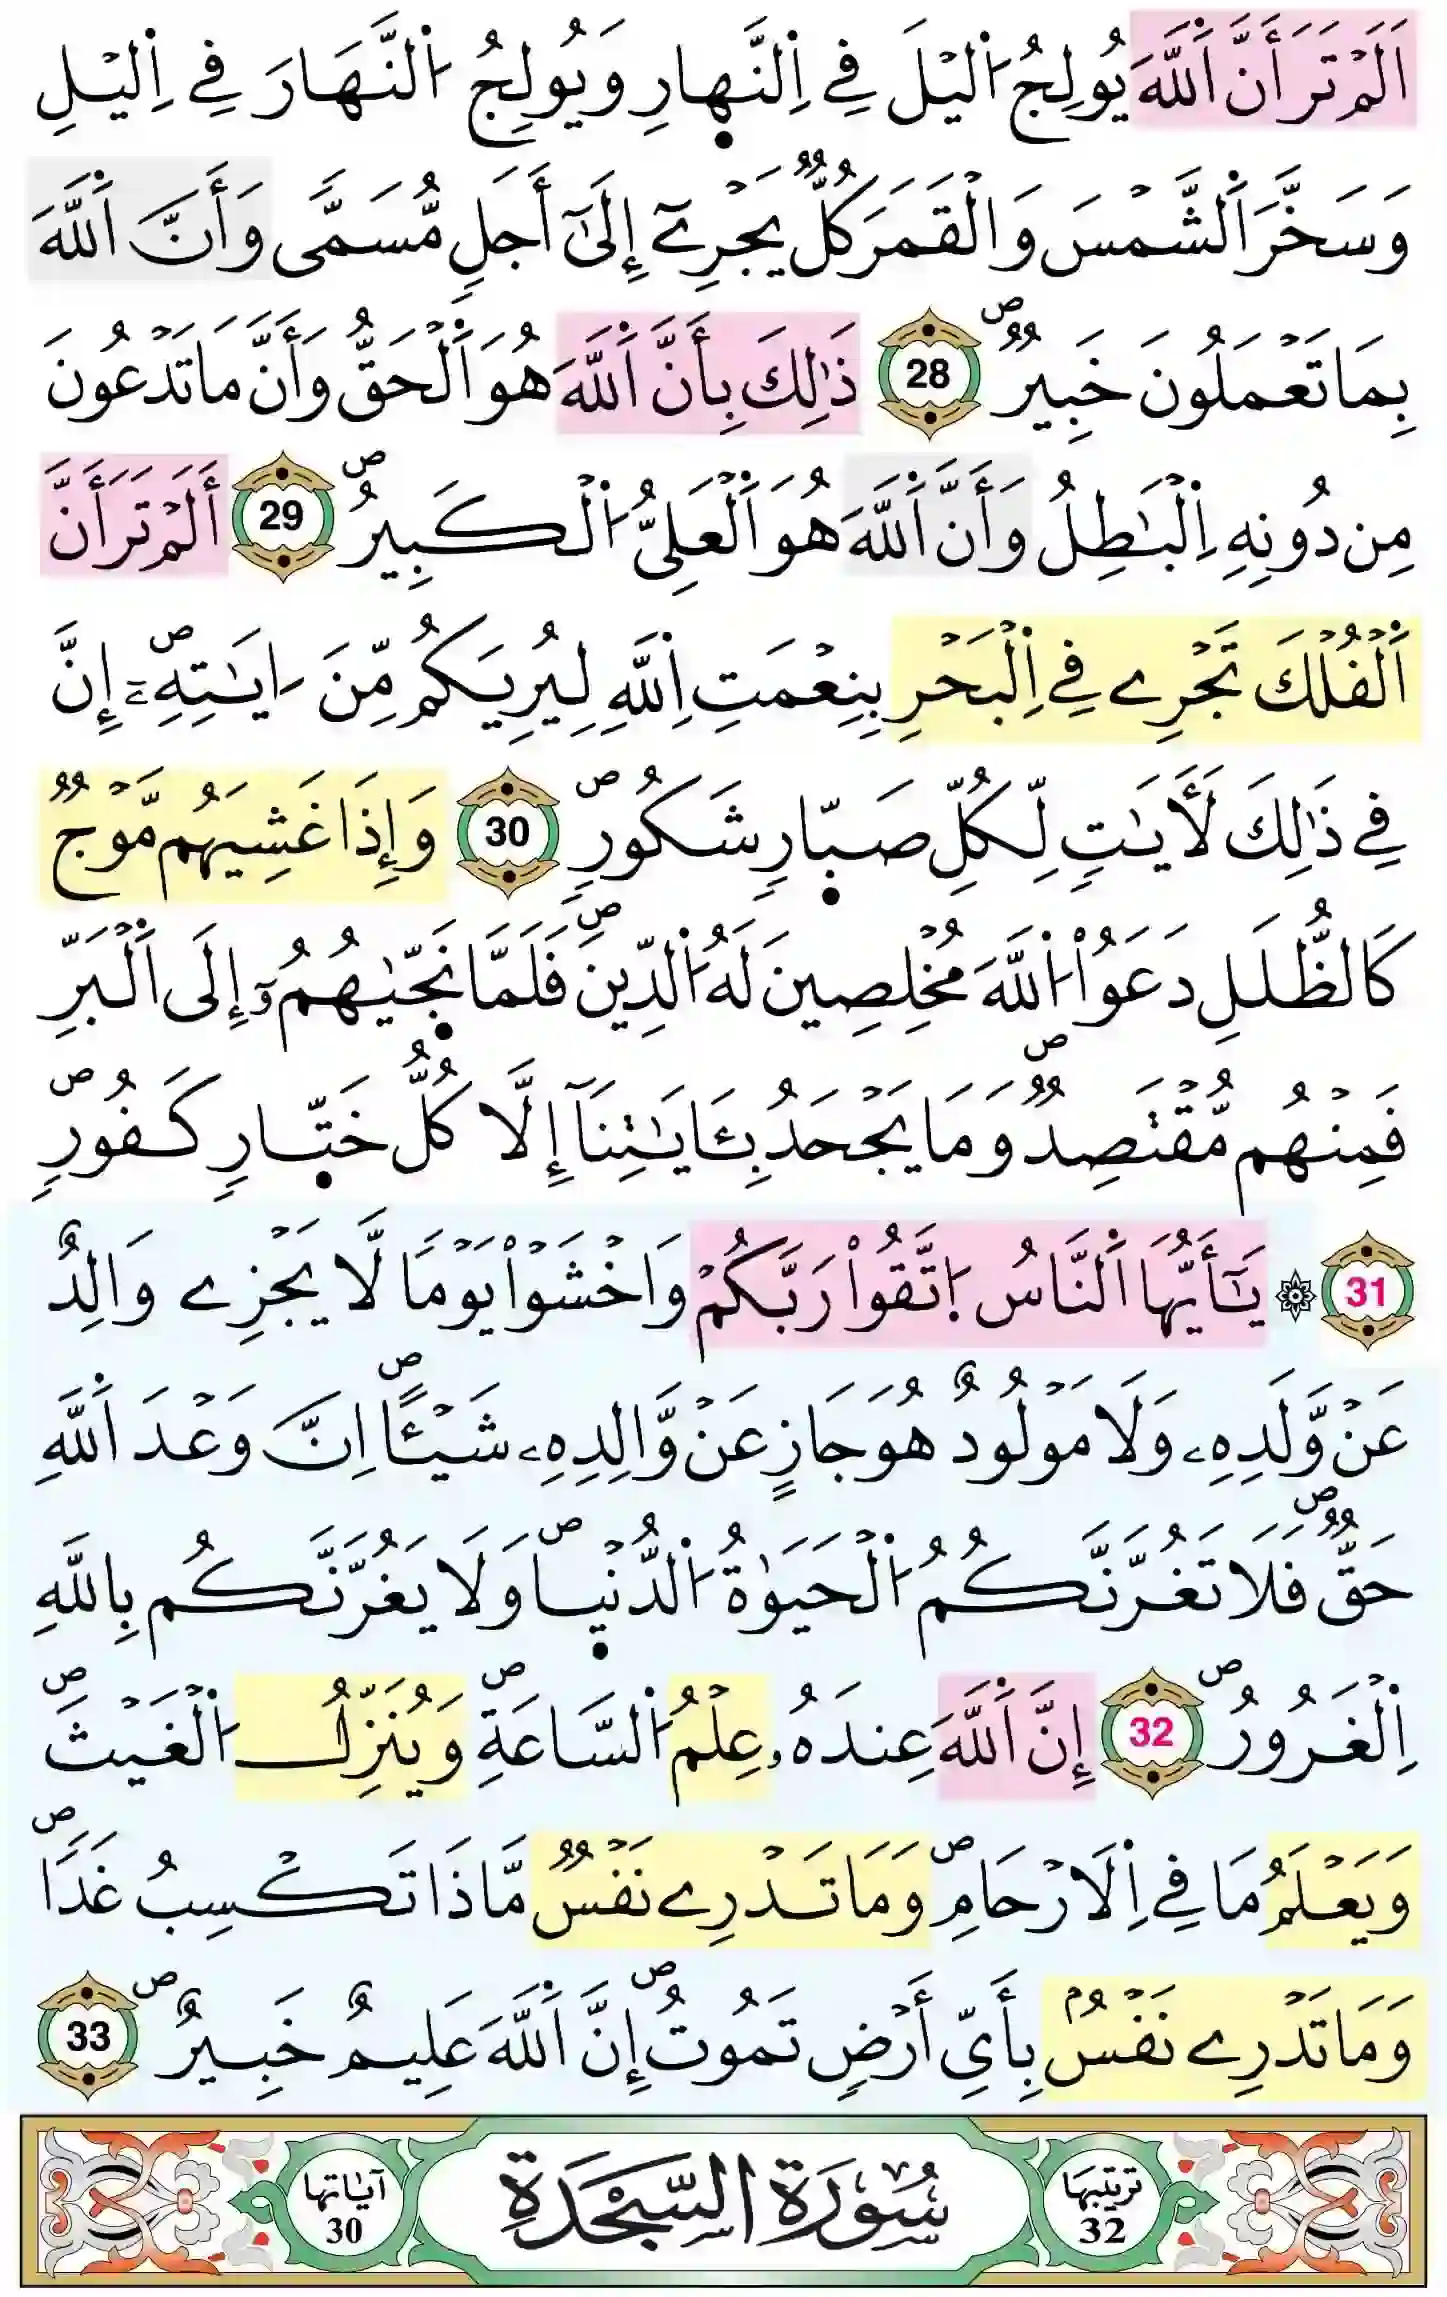 أَلَمْ تَرَ أَنَّ اَللَّهَ يُولِجُ اُليْلَ فِي اِلنَّهارِ وَيُولِجُ اُلنَّهَارَ فِي اِليْلِ
وَسَخَّرَ اَلشَّمْسَ وَالْقَمَرَ كُلٌّ يَجْرِےٓ إِلَىٰٓ أَجَلٖ مُّسَمّٗى وَأَنَّ اَللَّهَ
بِمَا تَعْمَلُونَ خَبِيرٞۖ 28 ذَٰلِكَ بِأَنَّ اَللَّهَ هُوَ اَلْحَقُّ وَأَنَّ مَا تَدْعُونَ
مِن دُونِهِ اِلْبَٰطِلُ وَأَنَّ اَللَّهَ هُوَ اَلْعَلِيُّ اُلْكَبِيرُۖ 29 أَلَمْ تَرَ أَنَّ
اَلْفُلْكَ تَجْرِے فِي اِلْبَحْرِ بِنِعْمَتِ اِللَّهِ لِيُرِيَكُم مِّنَ اٰيَٰتِهِۦٓۖ إِنَّ
فِي ذَٰلِكَ لَأٓيَٰتٖ لِّكُلِّ صَبّ۪ارٖ شَكُورٖۖ 30 وَإِذَا غَشِيَهُم مَّوْجٞ
كَالظُّلَلِ دَعَوُاْ اُللَّهَ مُخْلِصِينَ لَهُ اُلدِّينَۖ فَلَمَّا نَجّ۪يٰهُمُۥٓ إِلَى اَلْبَرِّ
فَمِنْهُم مُّقْتَصِدٞۖ وَمَا يَجْحَدُ بِـَٔايَٰتِنَآ إِلَّا كُلُّ خَتّ۪ارٖ كَفُورٖۖ
31 ۞ يَٰٓأَيُّهَا اَلنَّاسُ اُتَّقُواْ رَبَّكُمْ وَاخْشَوْاْ يَوْماٗ لَّا يَجْزِے وَالِدٌ
عَنْ وَّلَدِهِۦ وَلَا مَوْلُودٌ هُوَ جَازٍ عَنْ وَّالِدِهِۦ شَيْـٔاًۖ اِنَّ وَعْدَ اَللَّهِ
حَقّٞۖ فَلَا تَغُرَّنَّكُمُ اُلْحَيَوٰةُ اُلدُّنْي۪اۖ وَلَا يَغُرَّنَّكُم بِاللَّهِ
اِلْغَرُورُۖ 32 إِنَّ اَللَّهَ عِندَهُۥ عِلْمُ اُلسَّاعَةِۖ وَيُنَزِّلُ اُلْغَيْثَۖ
وَيَعْلَمُ مَا فِي اِلَارْحَامِۖ وَمَا تَدْرِے نَفْسٞ مَّاذَا تَكْسِبُ غَداٗۖ
وَمَا تَدْرِے نَفْسُۢ بِأَيِّ أَرْضٖ تَمُوتُۖ إِنَّ اَللَّهَ عَلِيمٌ خَبِيرٌۖ 33
ترتيبها 32 سُورَةُ السَّجْدَةِ آياتها 30